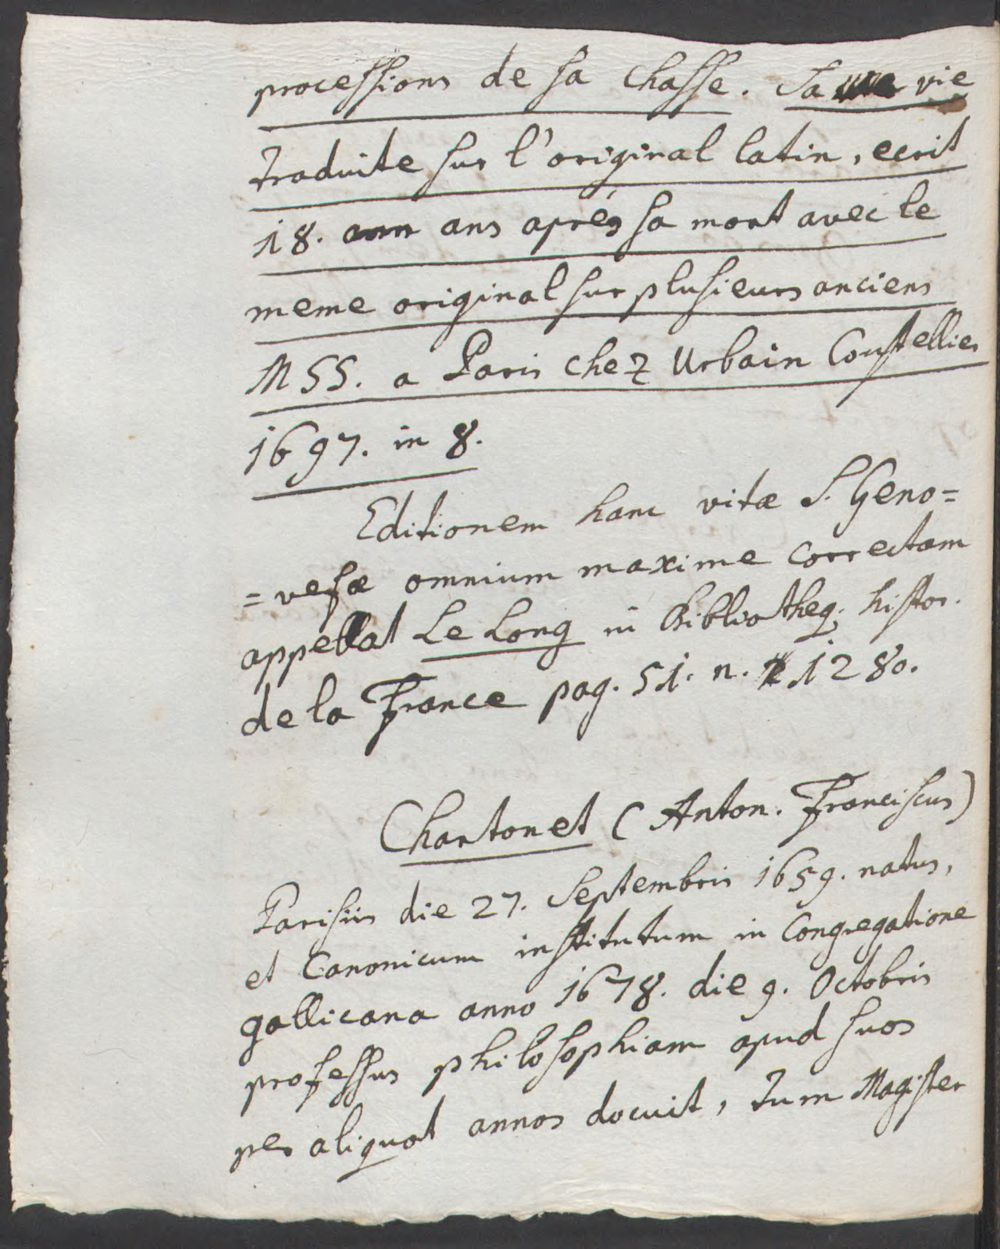 processions de sa chasse. Sa vie
traduite sur l'original latin, ecrit
18. ans aprés sa mort avec le
meme original sur plusieurs anciens
MSS. a Paris chez Urbain Coustellier
1697. in 8.
Editionem hanc vitæ S. Geno=
=vefæ omnium maxime correctam
appellat Le Long in Bibliotheq. histor.
de la France pag. 51. n. 1280.
Chartonet (Anton. Franciscus)
Parisiis die 27. Septembris 1659. natus,
et Canonicum institutum in Congregatione
gallicana anno 1678. die 9. Octobris
professus philosophiam apud suos
per aliquot annos docuit, tum Magister